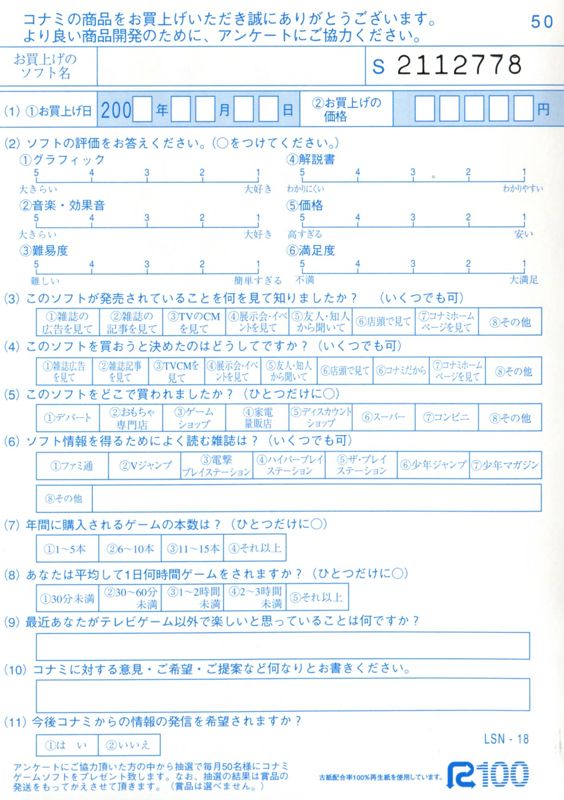 コナミの商品をお買上げいただき誠にありがとうございます。
より良い商品開発のために、アンケートにご協力ください。
50
お買上げの
ソフト名
S 2112778
(1) ①お買上げ日 200 年 月 日 ②お買上げの
価格 円
(2) ソフトの評価をお答えください。(○をつけてください。)
①グラフィック
5 4 3 2 1
大きらい 大好き
②音楽・効果音
5 4 3 2 1
大きらい 大好き
③難易度
5 4 3 2 1
難しい 簡単すぎる
④解説書
5 4 3 2 1
わかりにくい わかりやすい
⑤価格
5 4 3 2 1
高すぎる 安い
⑥満足度
5 4 3 2 1
不満 大満足
(3) このソフトが発売されていることを何を見て知りましたか? (いくつでも可)
①雑誌の
広告を見て
②雑誌の
記事を見て
③TVのCM
を見て
④展示会・イベ
ントを見て
⑤友人・知人
から聞いて
⑥店頭で見て
⑦コナミホーム
ページを見て
⑧その他
(4) このソフトを買おうと決めたのはどうしてですか? (いくつでも可)
①雑誌広告
を見て
②雑誌記事
を見て
③TVCMを
見て
④展示会・イ
ベントを見て
⑤友人・知人
から聞いて
⑥店頭で見て
⑥コナミだから
⑦コナミホーム
ページを見て
⑧その他
(5) このソフトをどこで買われましたか? (ひとつだけに○)
①デパート
②おもちゃ
専門店
③ゲーム
ショップ
④家電
量販店
⑤ディスカウント
ショップ
⑥スーパー
⑦コンビニ
⑧その他
(6) ソフト情報を得るためによく読む雑誌は? (いくつでも可)
①ファミ通
②Vジャンプ
③電撃
プレイステーション
④ハイパープレイ
ステーション
⑤ザ・プレイ
ステーション
⑥少年ジャンプ
⑦少年マガジン
⑧その他
(7) 年間に購入されるゲームの本数は? (ひとつだけに○)
①1~5本 ②6~10本 ③11~15本 ④それ以上
(8) あなたは平均して1日何時間ゲームをされますか? (ひとつだけに○)
①30分未満
②30~60分
未満
③1~2時間
未満
④2~3時間
未満
⑤それ以上
(9) 最近あなたがテレビゲーム以外で楽しいと思っていることは何ですか?
(10) コナミに対する意見・ご希望・ご提案など何なりとお書きください。
(11) 今後コナミからの情報の発信を希望されますか?
①は い ②いいえ
LSN - 18
アンケートにご協力頂いた方の中から抽選で毎月50名様にコナミ
ゲームソフトをプレゼント致します。なお、抽選の結果は賞品の
発送をもってかえさせて頂きます。(賞品は選べません。)
古紙配合率100%再生紙を使用しています。
R100